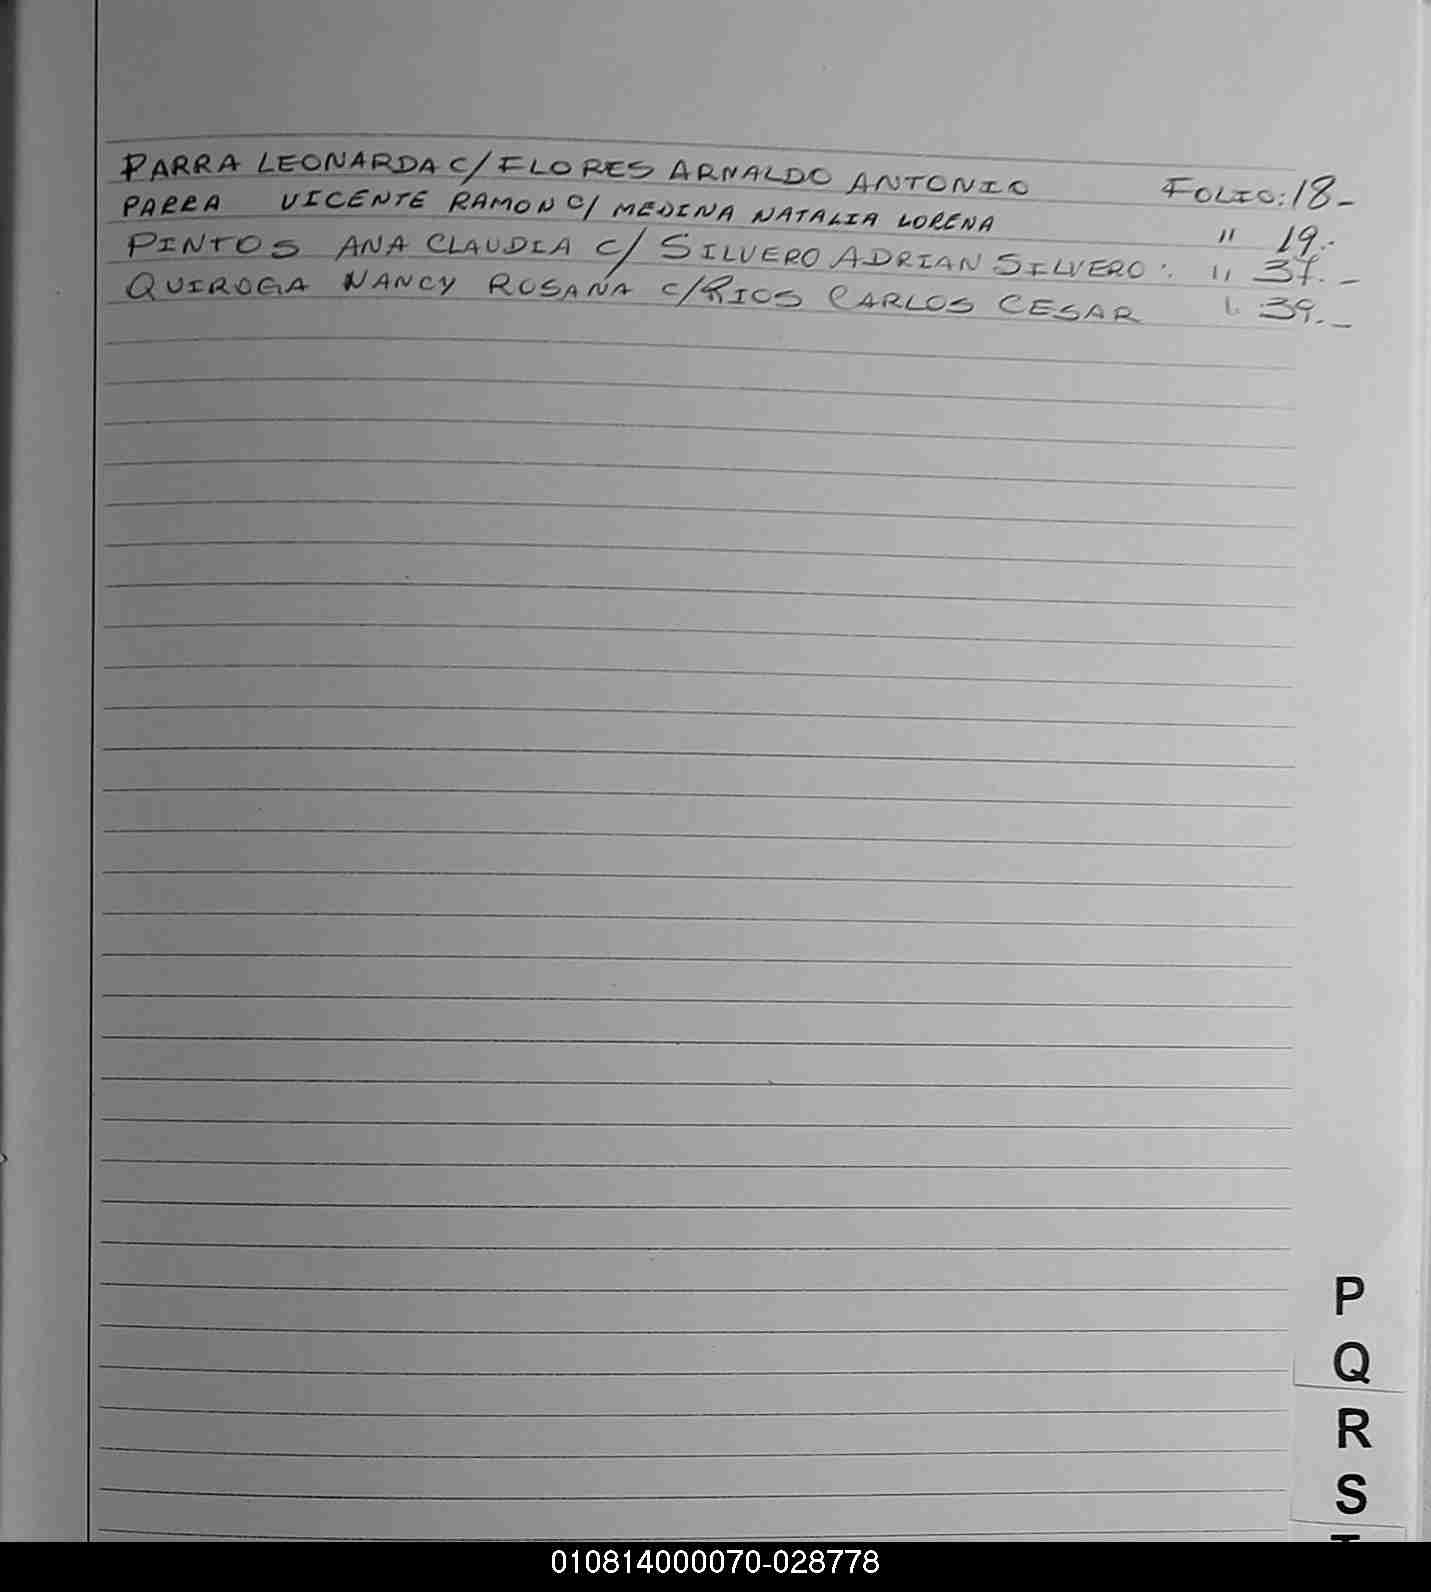 PARRA LEONARDA C/ FLORES ARNALDO ANTONIO FOLIO: 18-
PARRA VICENTE RAMON C/ MEDINA NATALIA LORENA " 19.-
PINTOS ANA CLAUDIA C/ SILVERO ADRIAN SILVERO . " 37.-
QUIROGA NANCY ROSANA C/ RIOS CARLOS CESAR " 39.-
P
Q
R
S
010814000070-028778